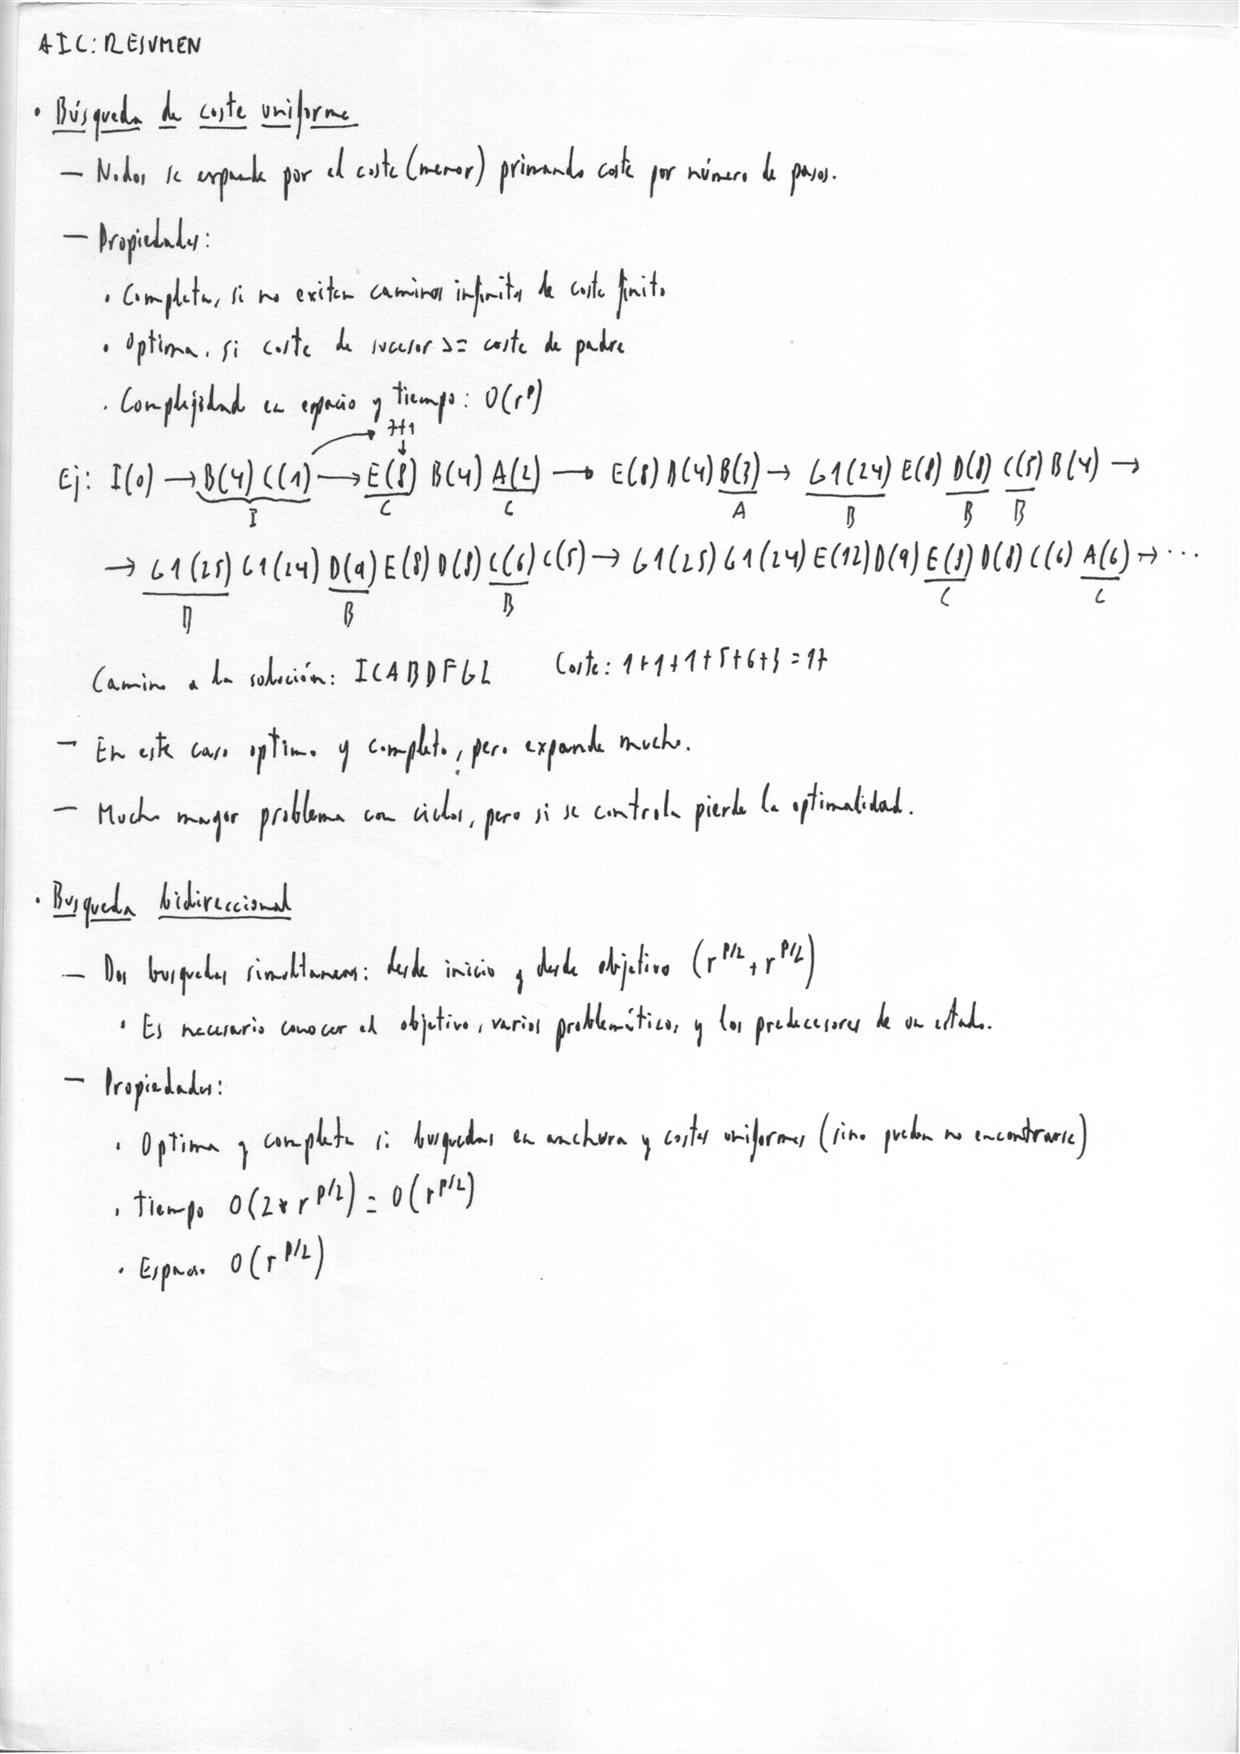 AIC: RESUMEN
• Búsqueda de coste uniforme
— Nodos se expande por el coste (menor) primando coste por número de pasos.
— Propiedades:
• Completa, si no exiten caminos infinitos de coste finito
• Optima, si coste de sucesor >= coste de padre
• Complejidad en espacio y tiempo: O(r^p)
7+1
Ej: I(0) → B(4) C(1) → E(8) B(4) A(2) → E(8) B(4) B(3) → G1(24) E(8) D(8) C(5) B(4) →
I C C A B B B
→ G1(25) G1(24) D(9) E(8) D(8) C(6) C(5) → G1(25) G1(24) E(12) D(9) E(8) D(8) C(6) A(6) → ...
B B B C C
Camino a la solución: ICABDFG2 Coste: 1+1+1+5+6+3=17
— En este caso optimo y completo, pero expande mucho.
— Mucho mayor problema con ciclos, pero si se controla pierde la optimalidad.
• Busqueda bidireccional
— Dos busquedas simultaneas: desde inicio y desde objetivo (r^p/2 + r^p/2)
• Es necesario conocer el objetivo, varios problemático, y los predecesores de un estado.
— Propiedades:
• Optima y completa si busquedas en anchura y costes uniformes (sino pueden no encontrarse)
• Tiempo O(2*r^p/2) = O(r^p/2)
• Espacio O(r^p/2)